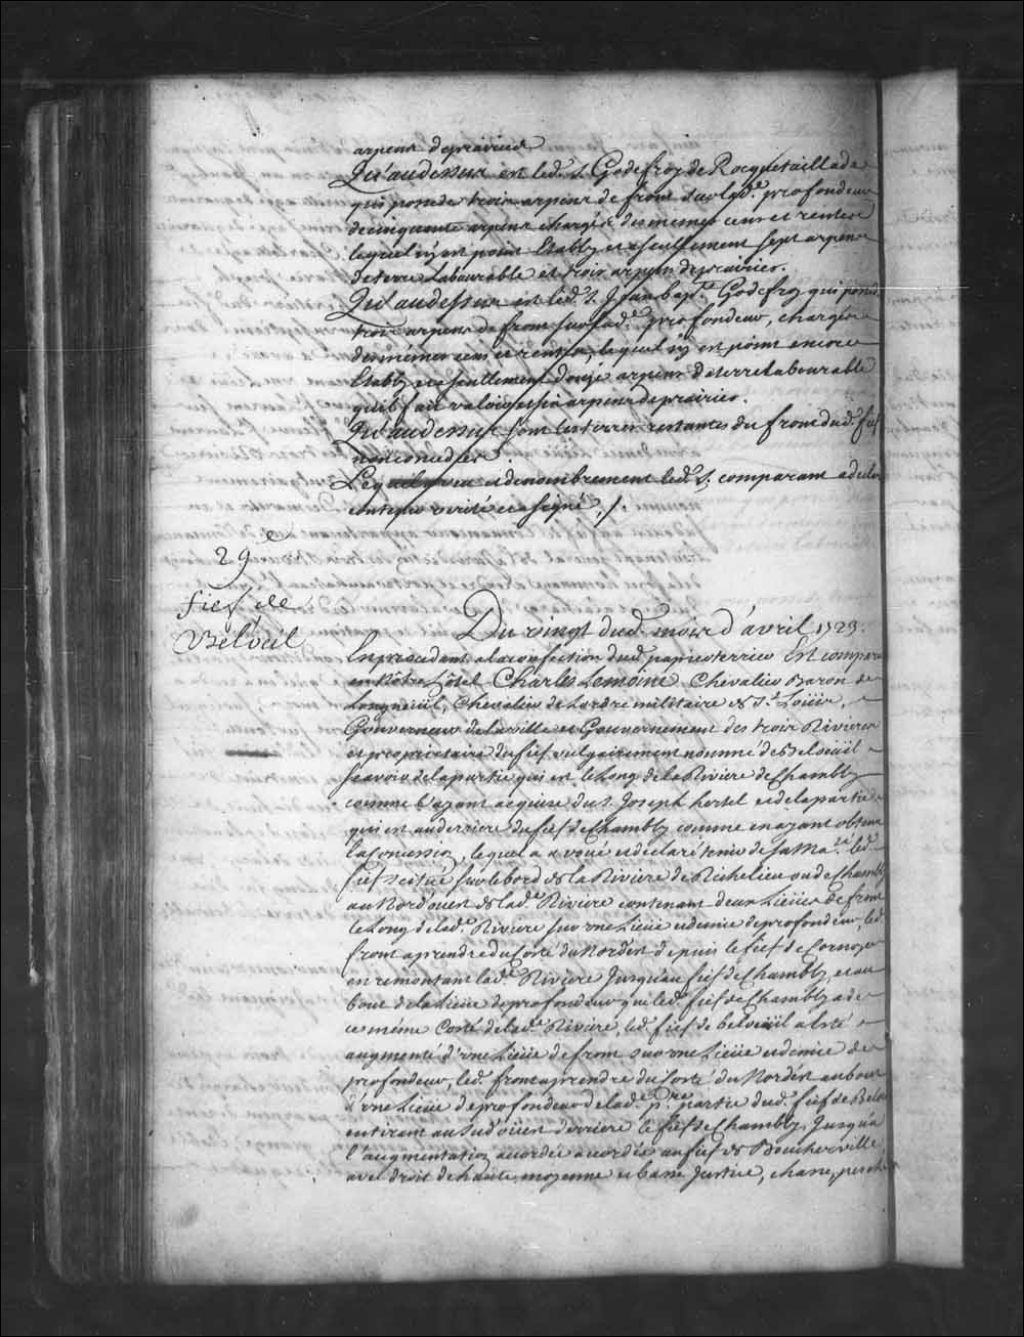 arpens de prairies
Qu'audessus est led. S. Godefroy de Rocquetaillade
qui possede trois arpens de front sur lad.e profondeur
de cinquante arpens chargés des memes cens et rentes
lequel n'y est point Etably et a seulement sept arpens
de terre Labourable et trois arpens de prairies.
Qu'audessus est led. S. Jean bap.te Godefroy qui possede
trois arpens de front sur lad.e profondeur, chargés
des mêmes cens et rentes, lequel n'y est point encore
Etably et a seullement douze arpens de terre Labourable
qu'il fait valoir et six arpens de prairies.
Qu'audessus sont les terres restantes du front dud. fief
non concedées.
Lequel aveu et denombrement led. S. comparant a declaré
contenir verité et a signé ./.
29e
fief de
Belœil
Du vingt dud. mois d'avril 1723.
En procedant a la confection dud. papier terrier Est comparu
en Nôtre hôtel Charles Lemoine Chevalier Baron de
Longueuil, Chevalier de Lordre militaire de St. Loüis,
Gouverneur de la ville et Gouvernement des trois Rivieres
et proprietaire du fief vulgairement nommé de Belœüil
scavoir de la partie qui est le Long de la Riviere de Chambly
comme l'ayant acquise du S. Joseph hertel et de la partie
qui est au derriere du fief de Chambly comme en ayant obtenu
la Concession, lequel a avoué et declaré tenir de sa Ma.té led.
fief scitué sur le bord de la Riviere de Richelieu ou de Chambly
au Nord'ouest de lad.e Riviere contenant deux Lieües de front
le Long de lad.e Riviere sur une Lieüe et demie de profondeur, led.
front a prendre du Costé du Nordest depuis le fief de Cornoyer
en remontant lad.e Riviere Jusqu'au fief de Chambly, et au
bout de la Lieüe de profondeur que led. fief de Chambly a de
ce même Costé de lad.e Riviere, led. fief de belœüil a esté
augmenté d'une Lieüe de front sur une Lieüe et demie de
profondeur, led. front a prendre du Costé du Nordest au bout
d'une Lieüe de profondeur de lad.e p.re partie dud. fief de Belœil
en tirant au Sud'oüest derriere le fief de Chambly Jusqu'à
l'augmentation accordée accordée au fief de Boucherville
avec droit de haute moyenne et basse Justice, chasse, pesche